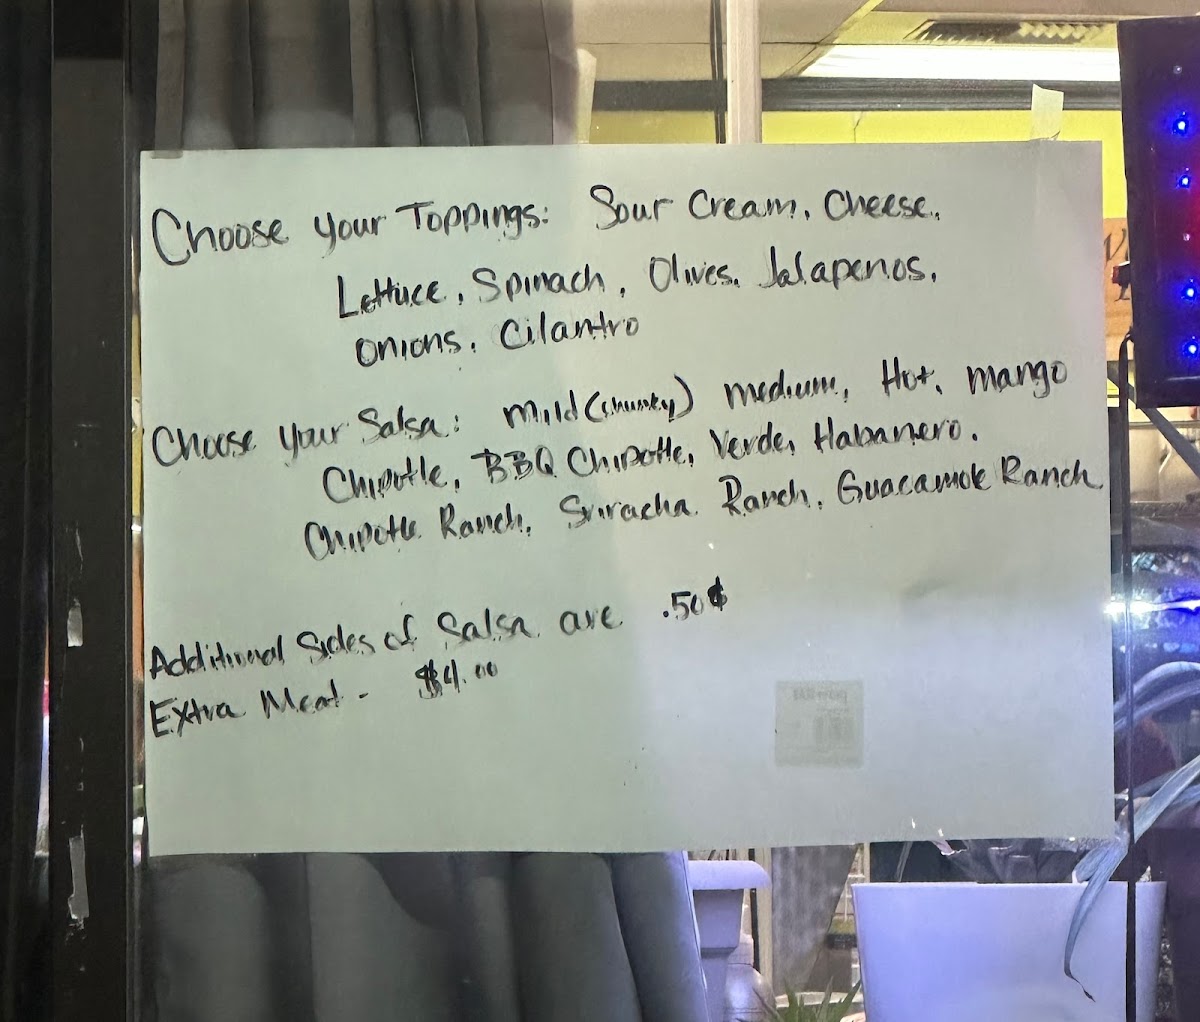 Choose your Toppings: Sour Cream, Cheese,
Lettuce, Spinach, Olives, Jalapenos,
onions, Cilantro
Choose your Salsa: mild (chunky) medium, Hot, mango
Chipotle, BBQ Chipotle, Verde, Habanero,
Chipotle Ranch, Sriracha Ranch, Guacamole Ranch
Additional Sides of Salsa are .50¢
Extra Meat - $4.00